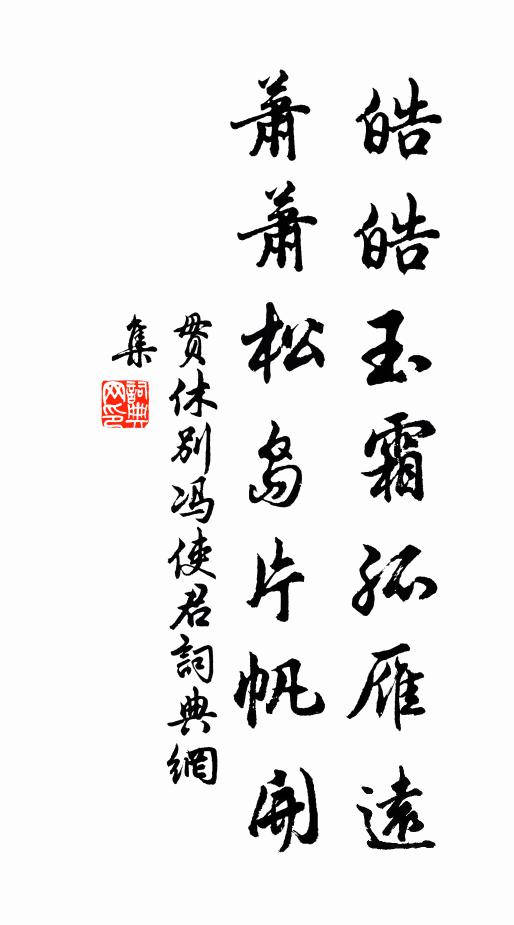 皓皓玉霜孤雁遠
蕭蕭松島片帆開
貫休別馮使君詞典網
集
詞典
网印